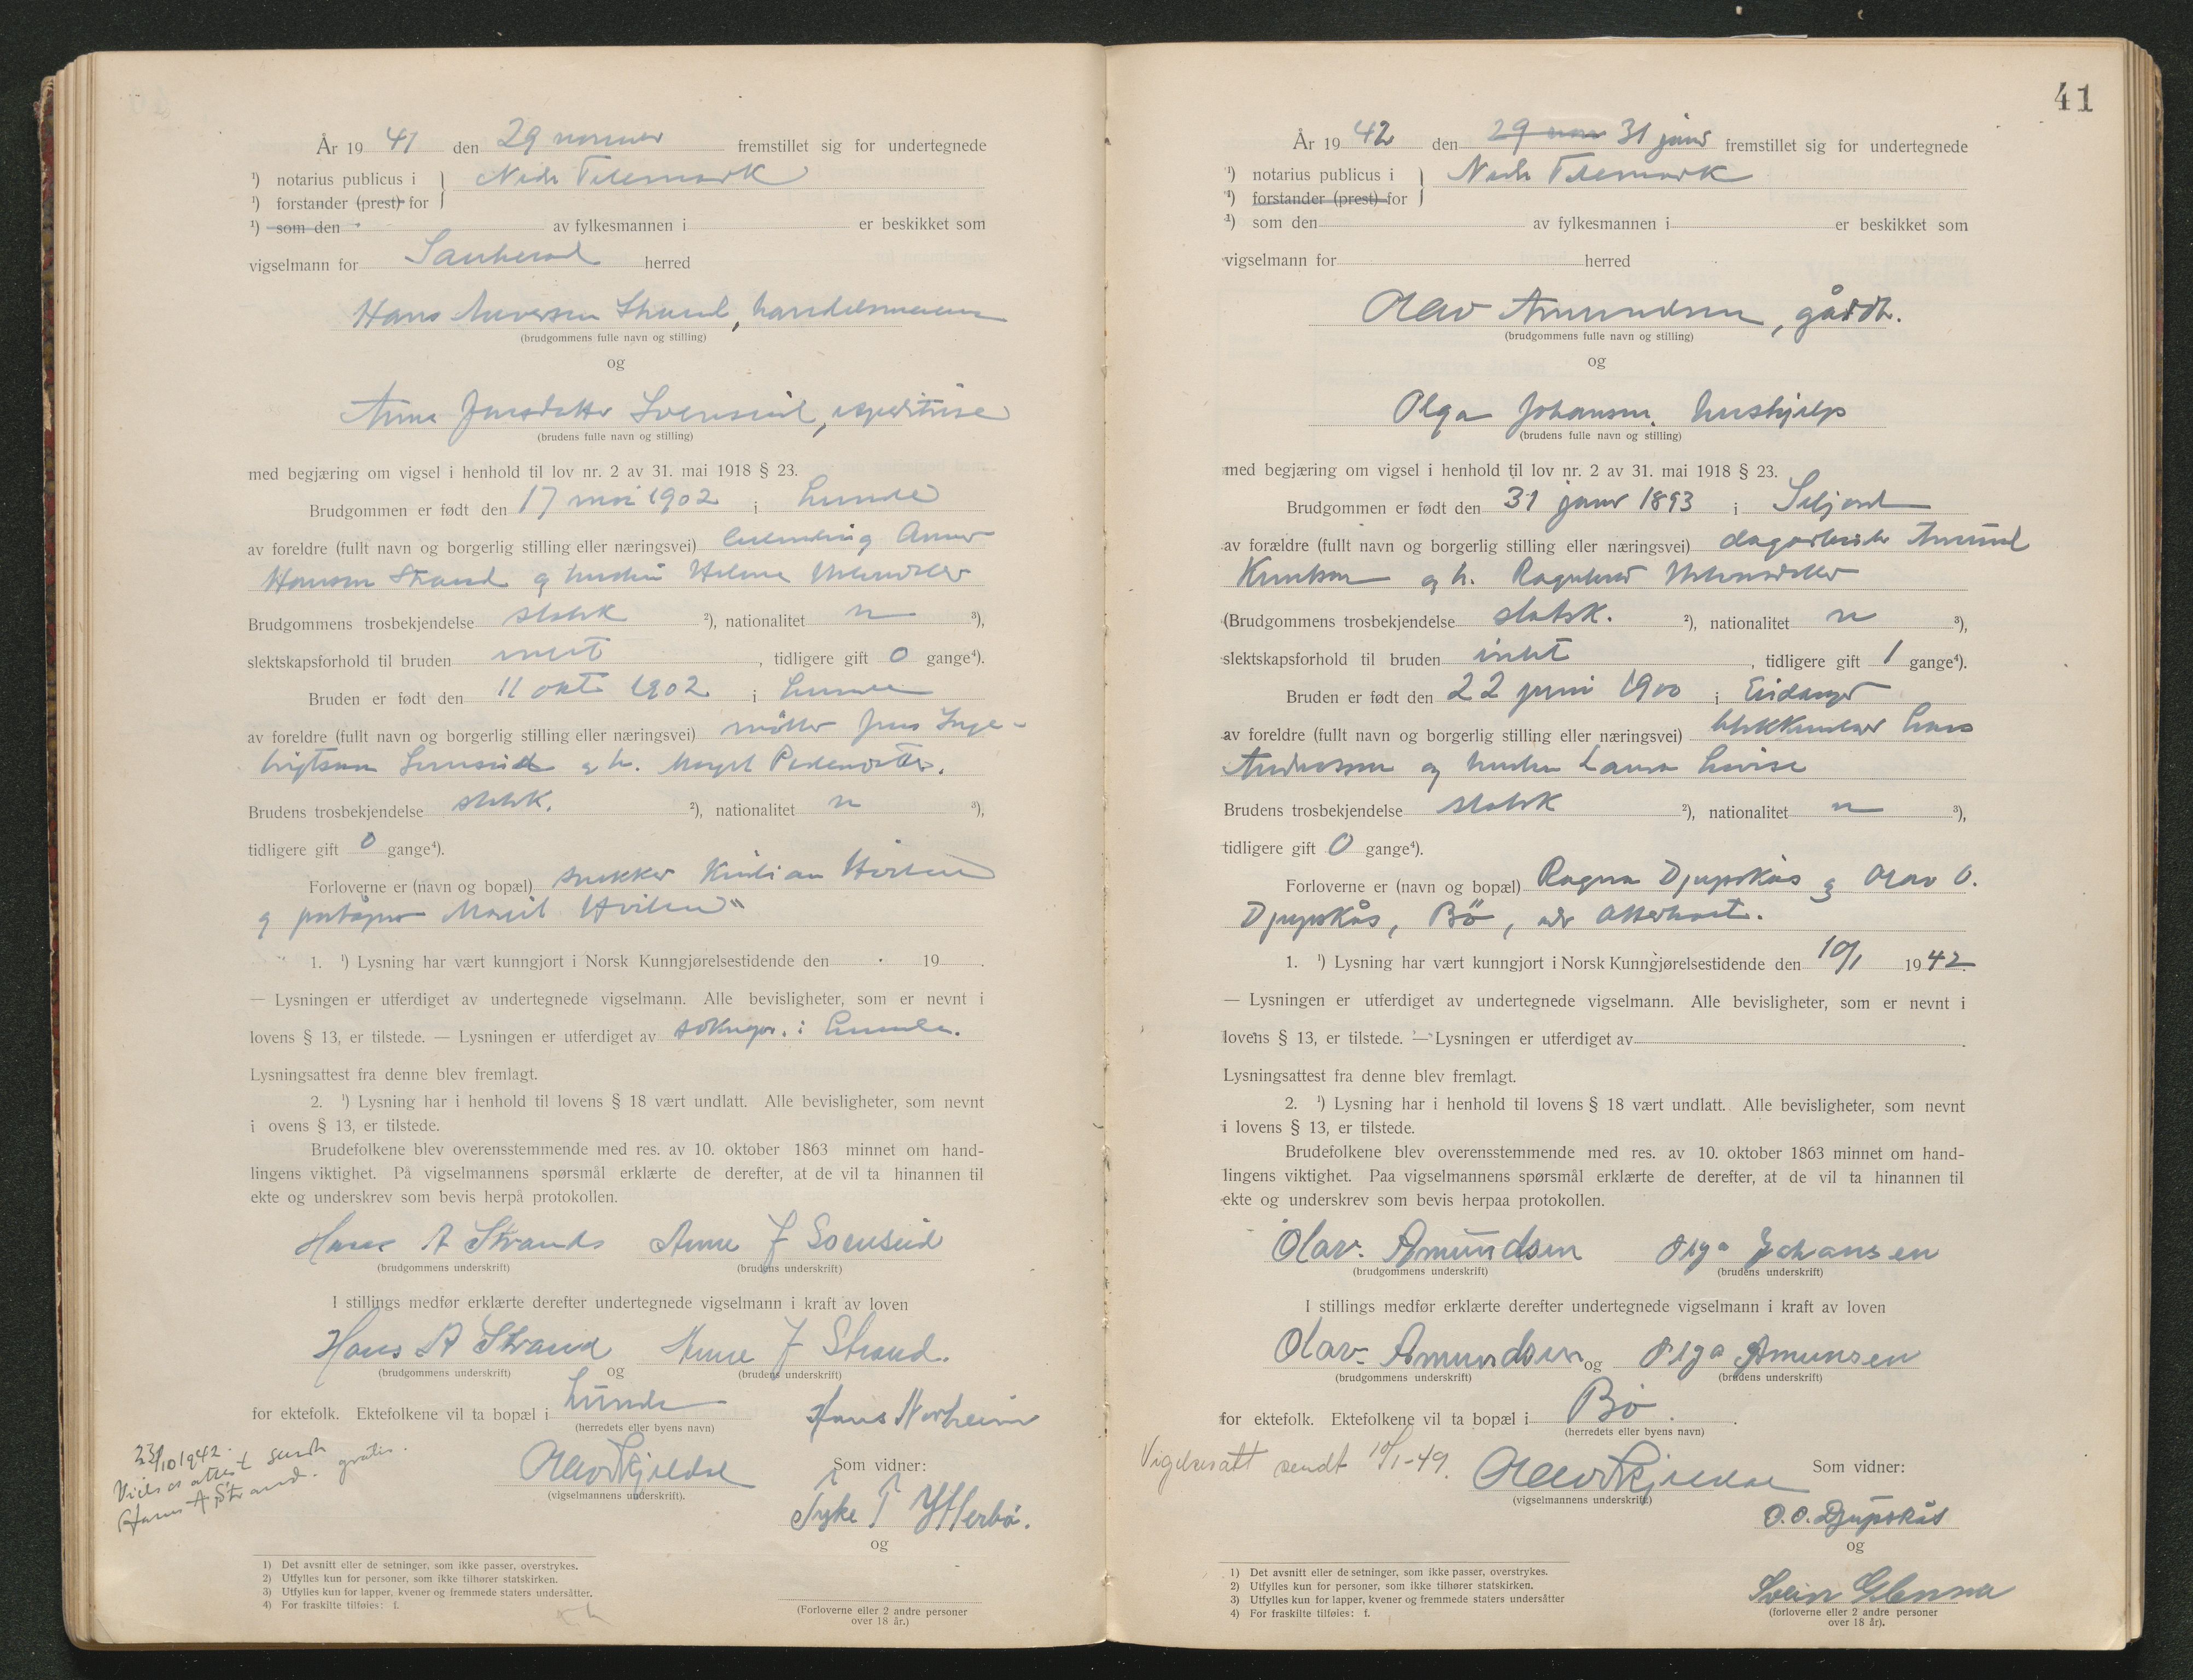 År 19 41 den 29 novmer fremstillet sig for undertegnede
¹) notarius publicus i } Nedr Telemark
¹) forstander (prest) for
¹) som den av fylkesmannen i er beskikket som
vigselmann for Sauherad herred
Hans Strand, handelsmann
(brudgommens fulle navn og stilling)
og
Anna Jensdatter Svenseid, expeditrise
(brudens fulle navn og stilling)
med begjæring om vigsel i henhold til lov nr. 2 av 31. mai 1918 § 23.
Brudgommen er født den 17 mai 1902 i Lunde
av foreldre (fullt navn og borgerlig stilling eller næringsvei)
Hansen Strand og hustru
Brudgommens trosbekjendelse statsk ²), nationalitet n ³),
slektskapsforhold til bruden intet, tidligere gift 0 gange⁴).
Bruden er født den 11 okt 1902 i Lunde
av foreldre (fullt navn og borgerlig stilling eller næringsvei) møller Jens Inge-
brigtsen Svenseid og h. Margit Pedersdatter.
Brudens trosbekjendelse statsk. ²), nationalitet n ³),
tidligere gift 0 gange⁴).
Forloverne er (navn og bopæl) snekker
og
1. ¹) Lysning har vært kunngjort i Norsk Kunngjørelsestidende den 19 .
— Lysningen er utferdiget av undertegnede vigselmann. Alle bevisligheter, som er nevnt i
lovens § 13, er tilstede. — Lysningen er utferdiget av soknepr. i Lunde.
Lysningsattest fra denne blev fremlagt.
2. ¹) Lysning har i henhold til lovens § 18 vært undlatt. Alle bevisligheter, som nevnt
i ovens § 13, er tilstede.
Brudefolkene blev overensstemmende med res. av 10. oktober 1863 minnet om hand-
lingens viktighet. På vigselmannens spørsmål erklærte de derefter, at de vil ta hinannen til
ekte og underskrev som bevis herpå protokollen.
Hans A Strand Anne J Svenseid
(brudgommens underskrift) (brudens underskrift)
I stillings medfør erklærte derefter undertegnede vigselmann i kraft av loven
Hans A Strand og Anne J Strand.
(brudgommens underskrift) (brudens underskrift)
for ektefolk. Ektefolkene vil ta bopæl i Lunde
(herredets eller byens navn)
Hans Norheim
23/10 1942.
Vielsesattest sendt
Hans A Strand. gratis.
Olav Skjeldal
(vigselmannens underskrift).
Som vidner:
Tyke T Ytterbø.
og
(Forloverne eller 2 andre personer
over 18 år.)
1) Det avsnitt eller de setninger, som ikke passer, overstrykes.
2) Utfylles kun for personer, som ikke tilhører statskirken.
3) Utfylles kun for lapper, kvener og fremmede staters undersåtter.
4) For fraskilte tilføies: f.
41
År 19 42 den 29 nov 31 janr fremstillet sig for undertegnede
¹) notarius publicus i } Nedr Telemark
¹) forstander (prest) for
¹) som den av fylkesmannen i er beskikket som
vigselmann for herred
Olav Amundsen, gårdbr.
(brudgommens fulle navn og stilling)
og
Olga Johansen, hushjelp
(brudens fulle navn og stilling)
med begjæring om vigsel i henhold til lov nr. 2 av 31. mai 1918 § 23.
Brudgommen er født den 31 janr 1893 i Seljord
av forældre (fullt navn og borgerlig stilling eller næringsvei) dagarbeider Amund
Knutson og h. Ragnhild
(Brudgommens trosbekjendelse statsk. ²), nationalitet n ³),
slektskapsforhold til bruden intet, tidligere gift 1 gange⁴).
Bruden er født den 22 juni 1900 i Eidanger
av foreldre (fullt navn og borgerlig stilling eller næringsvei) Lars
og hustru Laura Lovise
Brudens trosbekjendelse statsk ²), nationalitet n ³),
tidligere gift 0 gange⁴).
Forloverne er (navn og bopæl) Ragna Djupskås og Olav O.
Djupskås, Bø,
1. ¹) Lysning har vært kunngjort i Norsk Kunngjørelsestidende den 10/1 1942.
— Lysningen er utferdiget av undertegnede vigselmann. Alle bevisligheter, som er nevnt i
lovens § 13, er tilstede. — Lysningen er utferdiget av .
Lysningsattest fra denne blev fremlagt.
2. ¹) Lysning har i henhold til lovens § 18 vært undlatt. Alle bevisligheter, som nevnt
i lovens § 13, er tilstede.
Brudefolkene blev overensstemmende med res. av 10. oktober 1863 minnet om hand-
lingens viktighet. Paa vigselmannens spørsmål erklærte de derefter, at de vil ta hinannen til
ekte og underskrev som bevis herpaa protokollen.
Olav Amundsen Olga Johansen
(brudgommens underskrift) (brudens underskrift)
I stillings medfør erklærte derefter undertegnede vigselmann i kraft av loven
Olav Amundsen og Olga Amunsen
(brudgommens underskrift) (brudens underskrift)
for ektefolk. Ektefolkene vil ta bopæl i Bø .
(herredets eller byens navn)
Vigselsatt sendt 10/1-49.
Olav Skjeldal
(vigselmannens underskrift)
Som vidner:
O. O. Djupskås
og
Svein Glenna
(forloverne eller 2 andre personer
over 18 år).
1) Det avsnitt eller de setninger, som ikke passer, overstrykes.
2) Utfylles kun for personer, som ikke tilhører statskirken.
3) Utfylles kun for lapper, kvener og fremmede staters undersåtter
4) For fraskilte tilføies: f.